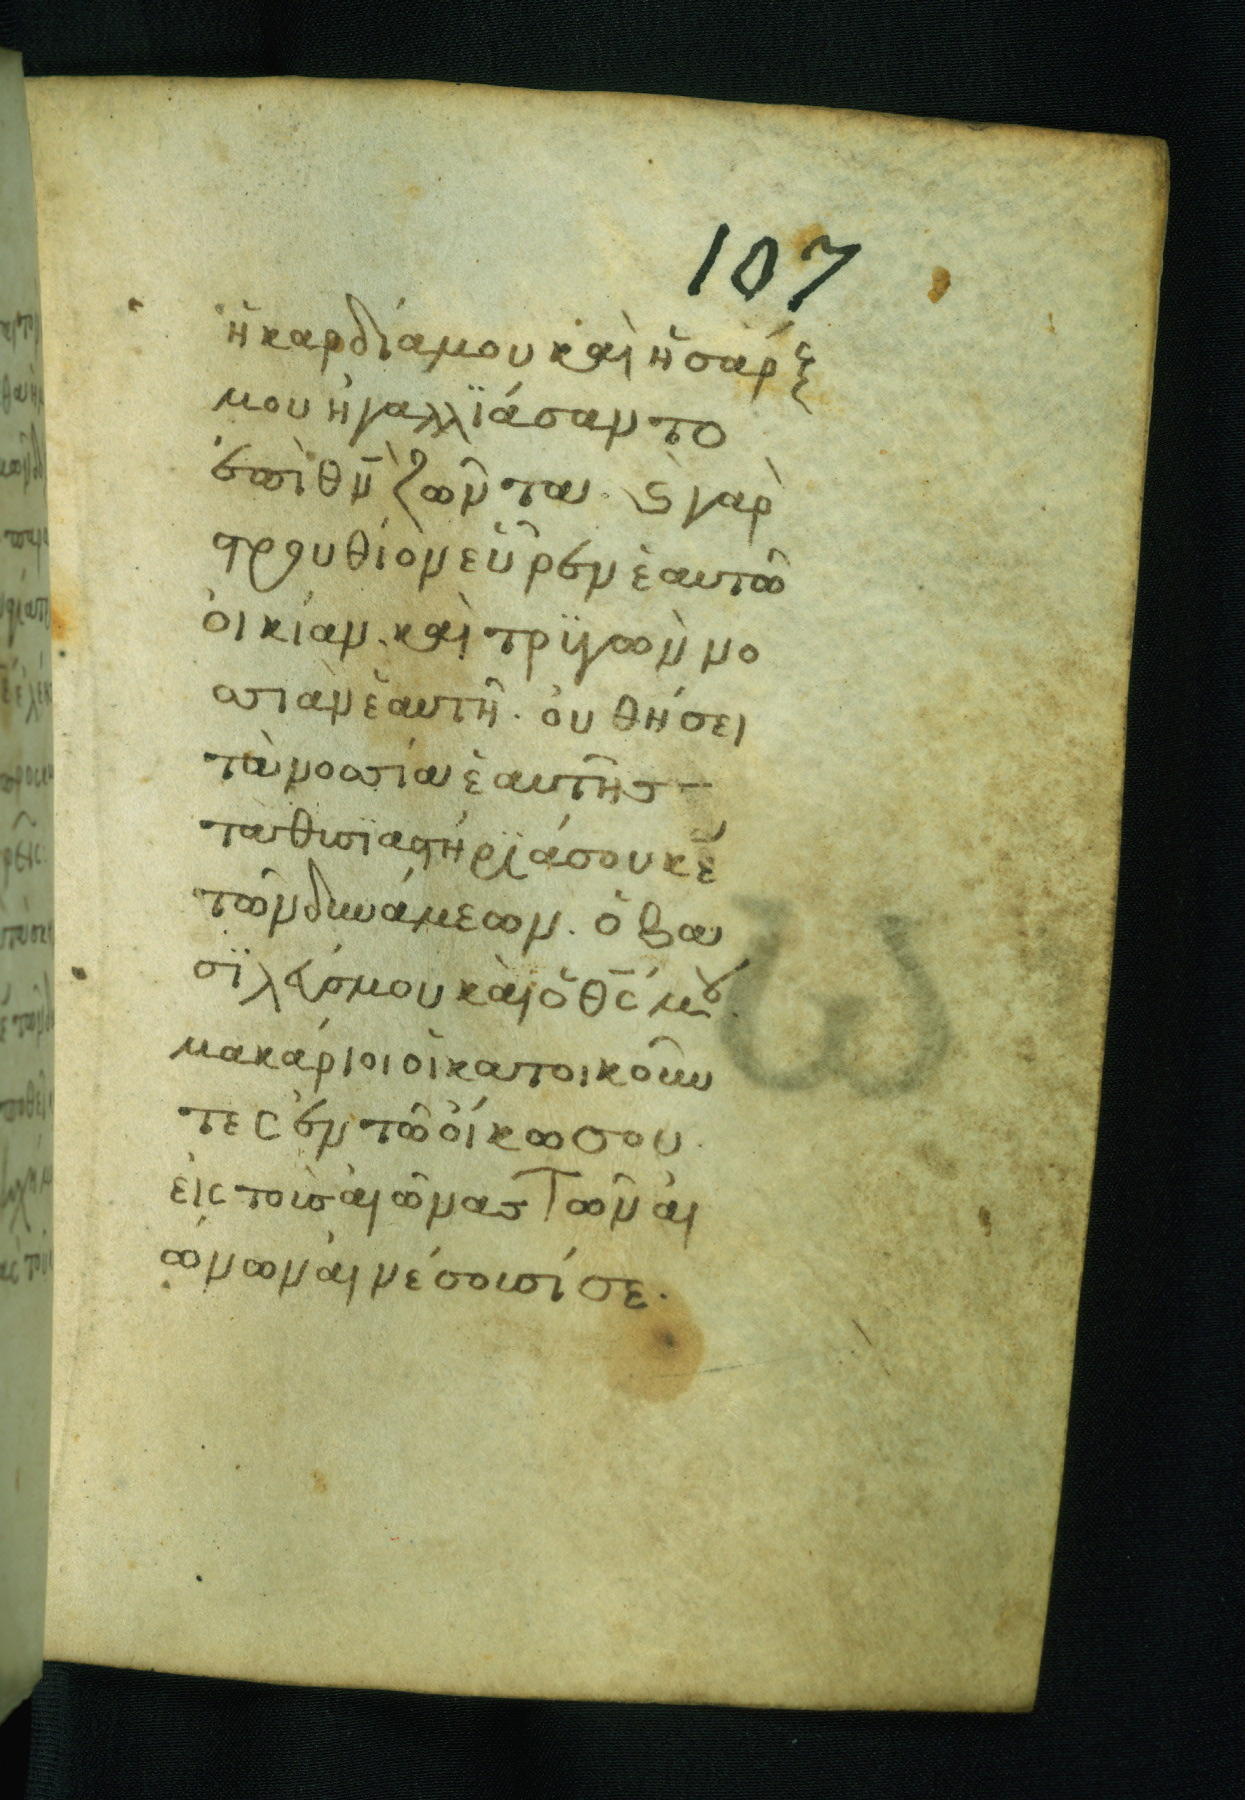 107
ἡ καρδία μου καὶ ἡ σάρξ
μου ἠγαλλϊάσαντο
ἐπὶ θν̅ ζῶντα. ϛ̀ γὰρ
στρουθίον εὗρεν ἑαυτῶ
ὀικίαν. καὶ τρϋγὼν νο
σιὰν ἑαυτῆ. ὁυ θήσει
τὰ νοσία ἑαυτῆς
τὰ θυσϊαστήρϊά σου κ̅ε̅
τῶν δυνάμεων. ὁ βα
σϊλεύς μου καὶ ὁ θ̅ς̅ μου.
μακάριοι ὁι κατοικοῦν
τες ἐν τῶ ὀίκω σου.
ἐις τοὺς ἀιῶνας τῶν ἀι
ώνων ἀινέσουσί σε.
ω